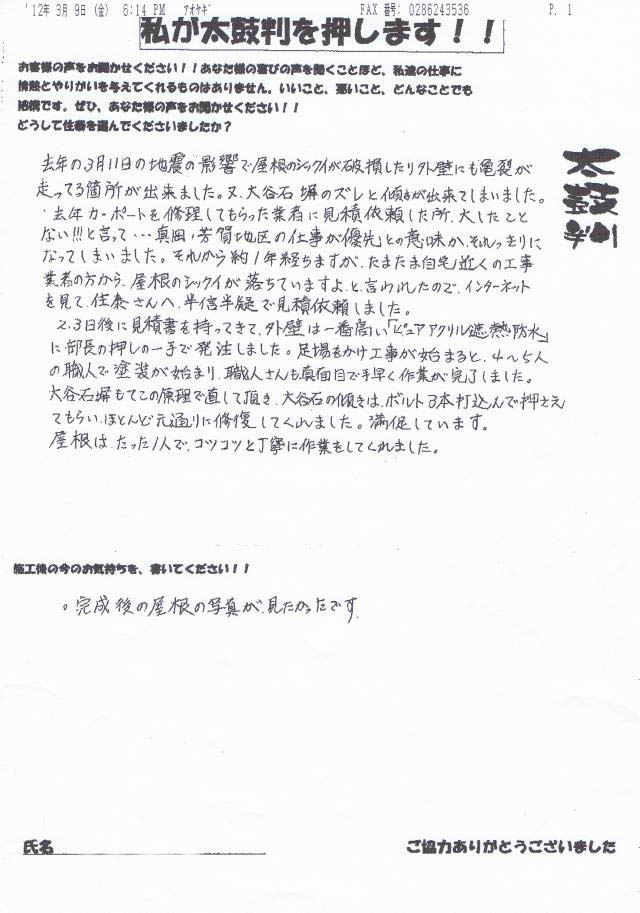 '12年 3月 9日(金) 6:14 PM ｱｵﾔｷﾞ FAX 番号: 0286243536 P. 1
私が太鼓判を押します！！
お客様の声をお聞かせください！！あなた様の喜びの声を聞くことほど、私達の仕事に
情熱とやりがいを与えてくれるものはありません。いいこと、悪いこと、どんなことでも
結構です。ぜひ、あなた様の声をお聞かせください！！
どうして住泰を選んでくださいましたか？
太鼓判
去年の3月11日の地震の影響で屋根のシックイが破損したり外壁にも亀裂が
走ってる箇所が出来ました。又、大谷石 塀のズレと傾きが出来てしまいました。
去年カーポートを修理してもらった業者に見積依頼した所、大したこと
ない!!!と言って…真岡・芳賀地区の仕事が優先との意味か、それっきりに
なってしまいました。それから約1年経ちますが、たまたま自宅近くの工事
業者の方から、屋根のシックイが落ちていますよ、と言われたので、インターネット
を見て、住泰さんへ、半信半疑で見積依頼しました。
2.3日後に見積書を持ってきて、外壁は一番高い「ピュアアクリル遮熱防水」
に部長の押しの一手で発注しました。足場をかけ工事が始まると、4～5人
の職人で塗装が始まり、職人さんも真面目で手早く作業が完了しました。
大谷石塀もてこの原理で直して頂き、大谷石の傾きは、ボルト3本打込んで押さえ
てもらい、ほとんど元通りに修復してくれました。満足しています。
屋根は、たった1人で、コツコツと丁寧に作業をしてくれました。
施工後の今のお気持ちを、書いてください！！
。完成後の屋根の写真が、見たかったです。
氏名
ご協力ありがとうございました